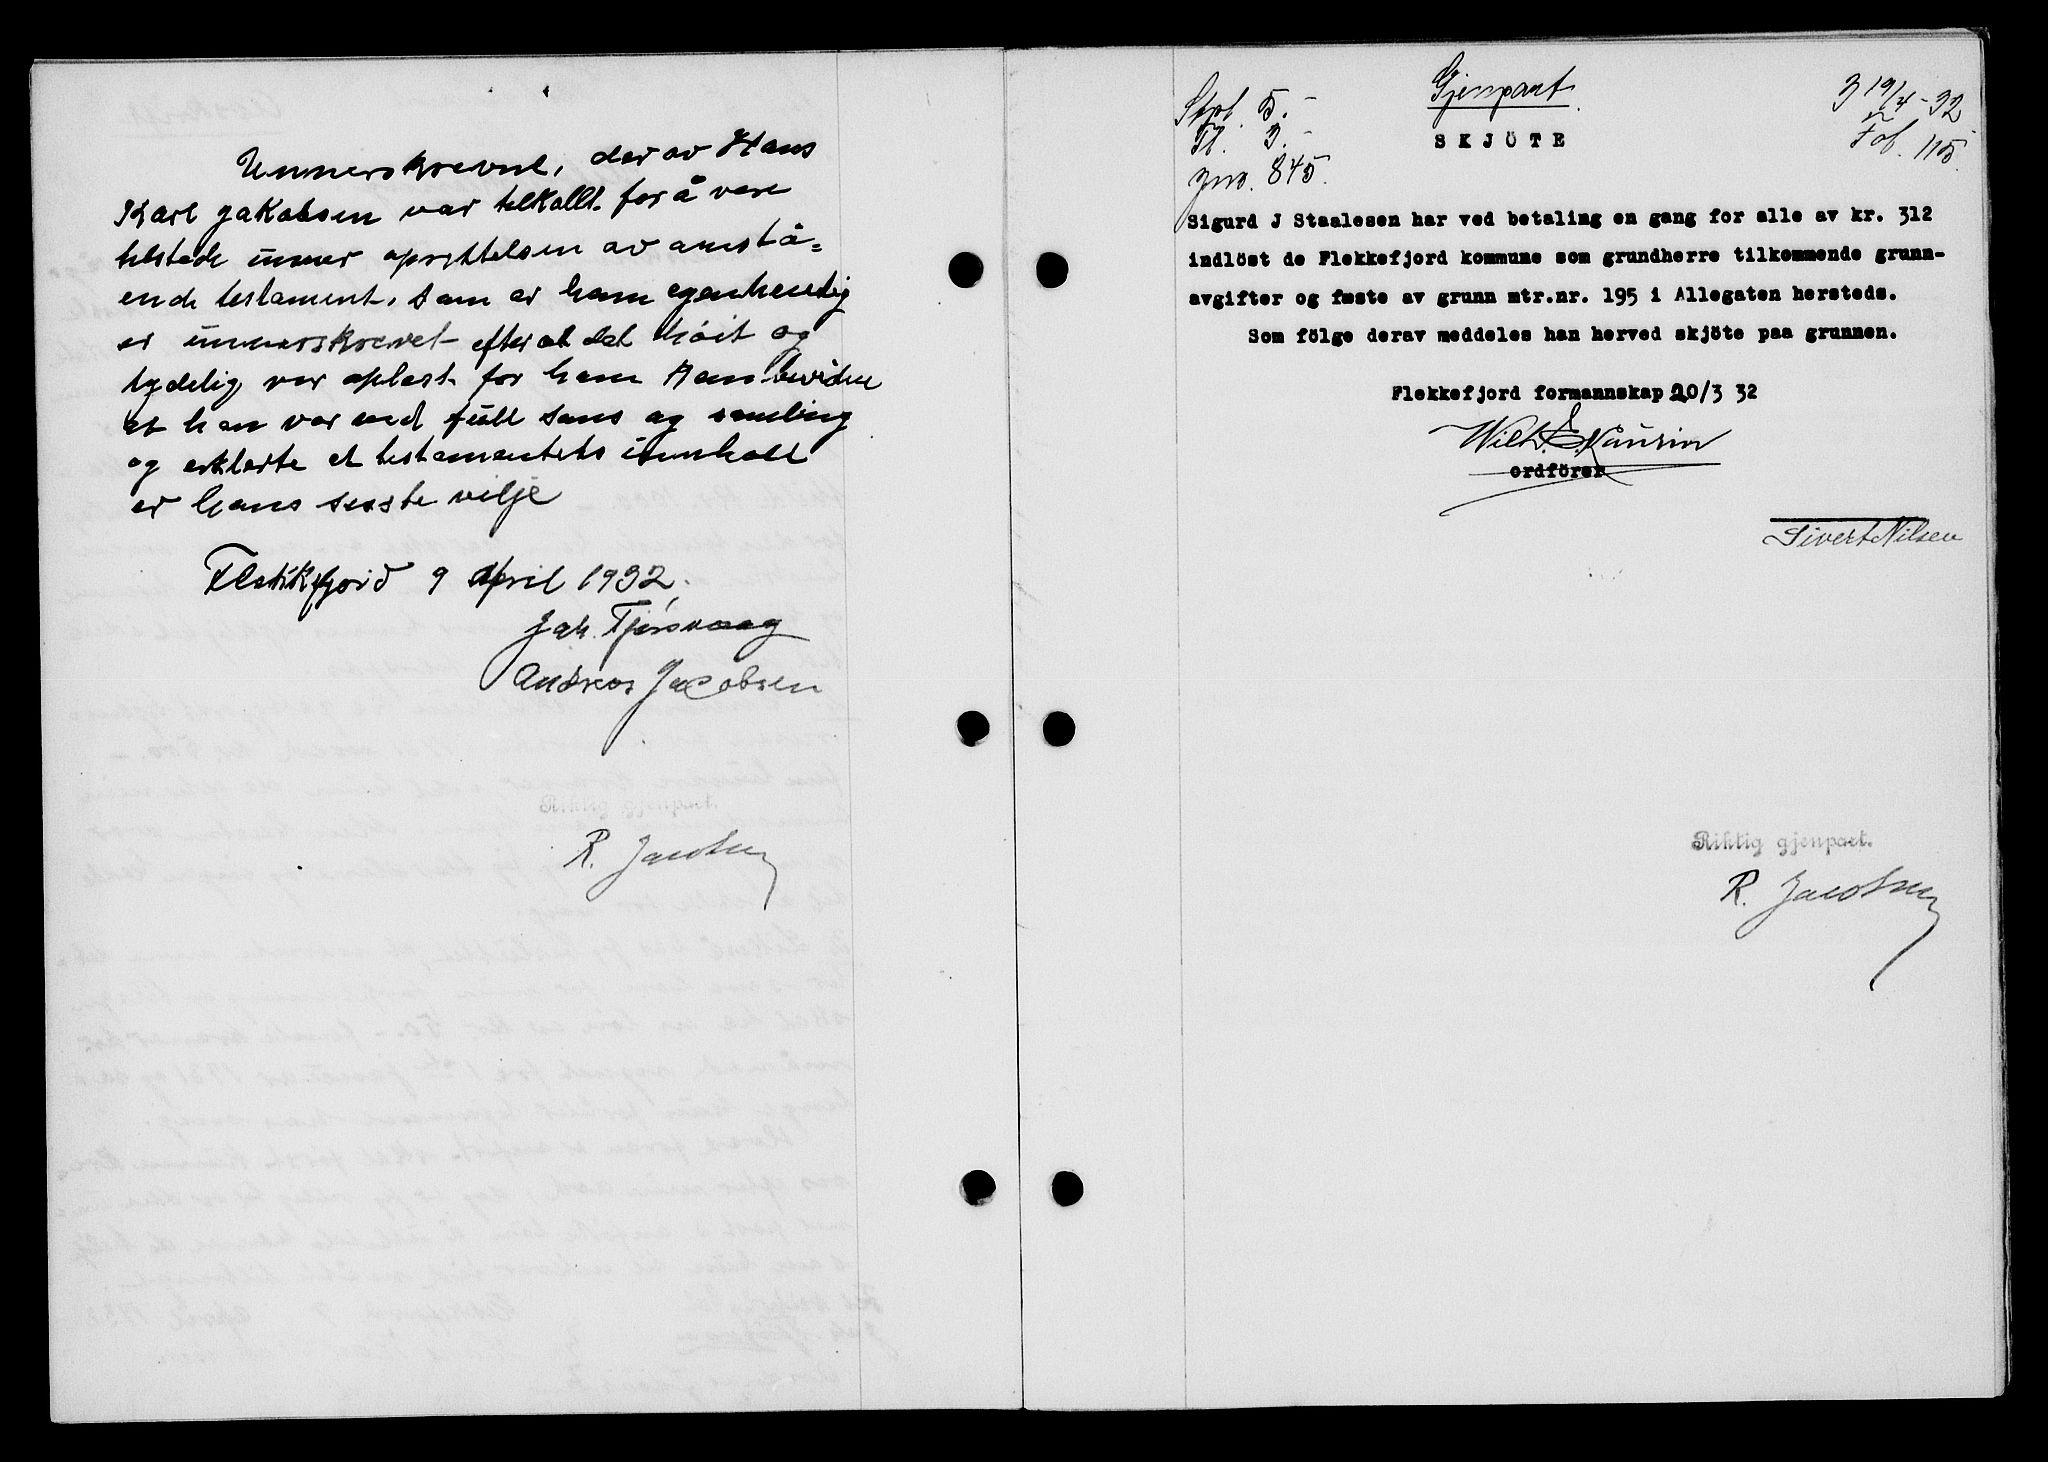 Unnerskrevne, der av Hans
Karl Jakobsen var tilkallt for å vere
tilstede unner oprettelsen av anstå-
ende testament, som er ham egenhendig
er unnerskrevet efter at det höit og
tydelig var oplest for ham
at han var ved full sans og samling
og erklerte at testamentets innhold
er hans sisste vilje
Flekkefjord 9 April 1932.
Jak. Tjörsvaag
Andreas Jacobsen
Riktig gjenpart.
R. Jacobsen
Stpl. 5.-
Tl. 3.-
Jno. 845.
Gjenpart
SKJÖTE
3 19/4-32
Fol. 115
Sigurd J Staalesen har ved betaling en gang for alle av kr. 312
indlöst de Flekkefjord kommune som grundherre tilkommende grunn-
avgifter og fæste av grunn mtr.nr. 195 i Allegaten hersteds.
Som fölge derav meddeles han herved skjöte paa grunnen.
Flekkefjord formannskap 20/3 32
Wilh. E. Kaurin
ordförer
Sivert Nilsen
Riktig gjenpart.
R. Jacobsen